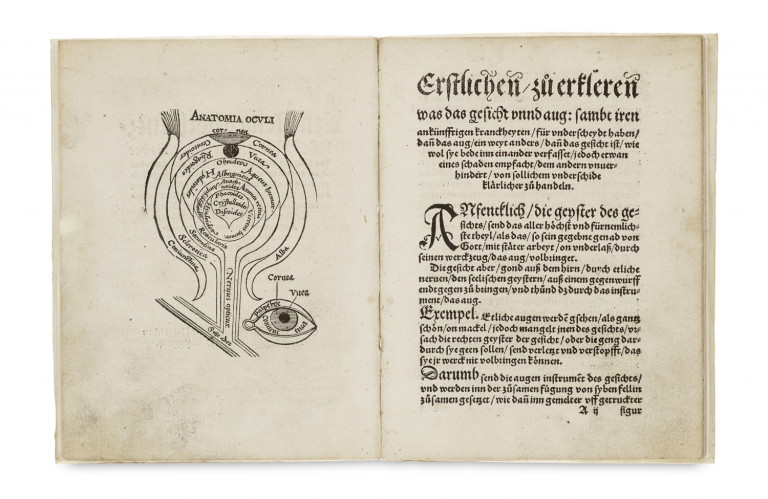 ANATOMIA OCULI
cor- nea
Cornea
Vuea
Aqueus humor
Albugineus
Aranea
Phacoides
Crystalloides
Discoides
Retiformis
Secundina
Sclerotica
Coniunctiua
Alba
Neruus opticus
Cornea
Vuea
Erstlichen̄ / zů erkleren̄
was das gesicht vnnd aug: sambt iren
ankünfftigen kranckheyten / für vnderscheydt haben /
dañ das aug / ein weyt anders / dañ das gesicht ist / wie
wol sye bede inn einander verfasset / jedoch etwan
eines schaden empfacht / dem andern vnuer-
hindert / von sollichem vnderschide
klårlicher zů handeln.
ANfencklich / die geyster des ge-
sichts / send das aller höchst vnd fürnemlich-
ste theyl / als das / so sein gegebne genad von
Gott / mit ståter arbeyt / on vnderlaß / durch
seinen werckzeug / das aug / volbringet.
Die gesicht aber / gond auß dem hirn / durch etliche
neruen / den seelischen geystern / auß einem gegenwurff
endt gegen zů bringen / vnd thůnd dz durch das instru-
ment / das aug.
Exempel. Etliche augen werdē gsehen / als gantz
schön / on mackel / jedoch mangelt jnen des gesichts / vr-
sach die rechten geyster der gesicht / oder die geng dar-
durch sye geen sollen / send verletzt vnd verstopfft / das
sye jr werck nit volbringen können.
Darumb send die augen instrumēt des gesichts /
vnd werden inn der zůsamen fügung von syben fellin
zůsamen gesetzet / wie dañ inn gemelter vff getruckter
A ij figur